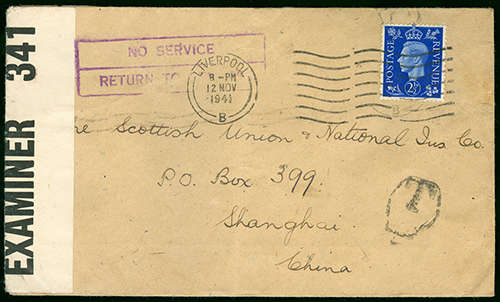 EXAMINER 341
NO SERVICE
RETURN TO
LIVERPOOL
8-PM
12 NOV
1941
B
POSTAGE
REVENUE
2½
he Scottish Union & National Ins Co.
P.O. Box 399.
Shanghai
China
T